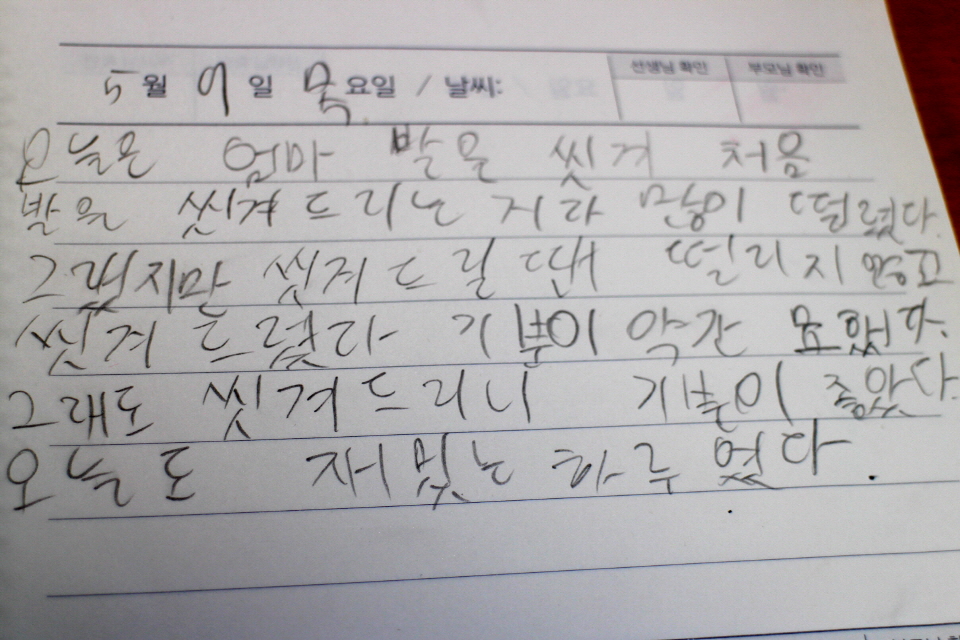 5월 9일 목요일 / 날씨: 선생님 확인 부모님 확인
오늘은 엄마 발을 씻겨 처음
발을 씻겨드리는 거라 많이 떨렸다.
그렇지만 씻겨드릴때 떨리지 않고
씻겨 드렸다 기분이 약간 묘했다.
그래도 씻겨드리니 기분이 좋았다.
오늘도 재밌는 하루였다.